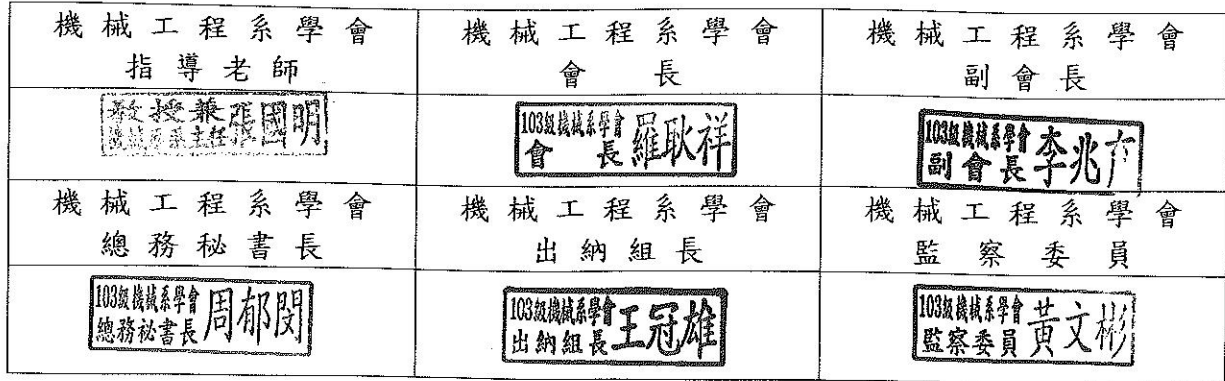 機械工程系學會
指導老師
機械工程系學會
會長
機械工程系學會
副會長
教授兼
機械系系主任
張國明
103級機械系學會
會長
羅耿祥
103級機械系學會
副會長
李兆
機械工程系學會
總務秘書長
機械工程系學會
出納組長
機械工程系學會
監察委員
103級機械系學會
總務祕書長
周郁閔
103級機械系學會
出納組長
王冠雄
103級機械系學會
監察委員
黃文彬